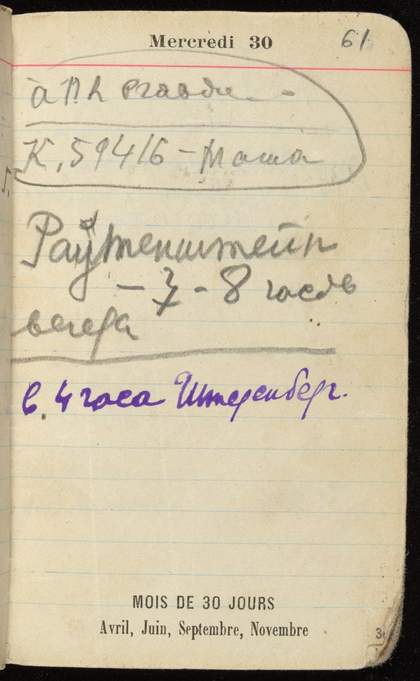 Mercredi 30
61
К, 59416 – Маша
Раутенштейн
– 7 – 8 часов
вечера
в. 4 часа Штеренберг.
MOIS DE 30 JOURS
Avril, Juin, Septembre, Novembre